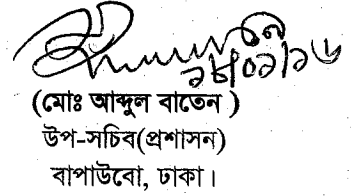 ২৮/০২/১৬
(মোঃ আব্দুল বাতেন )
উপ-সচিব(প্রশাসন)
বাপাউবো, ঢাকা।